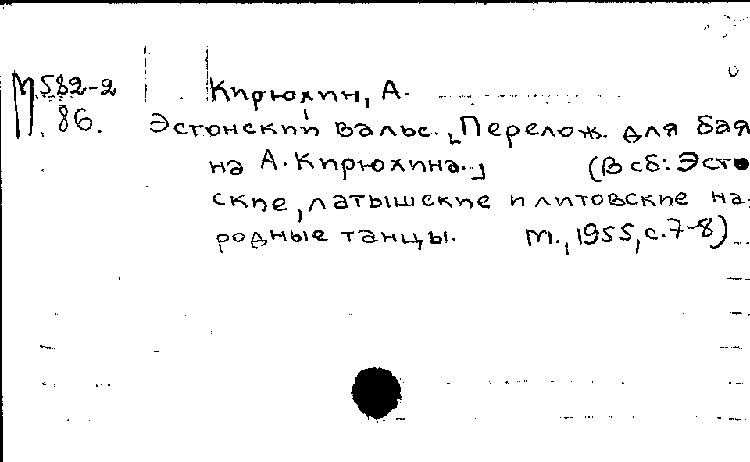 М 582-2
86.
Кирюхин, А.
Эстонский вальс. [Перелож. для бая
на А. Кирюхина.] (В сб: Эсто
ские, латышские и литовские на
родные танцы. М., 1955, с. 7-8)